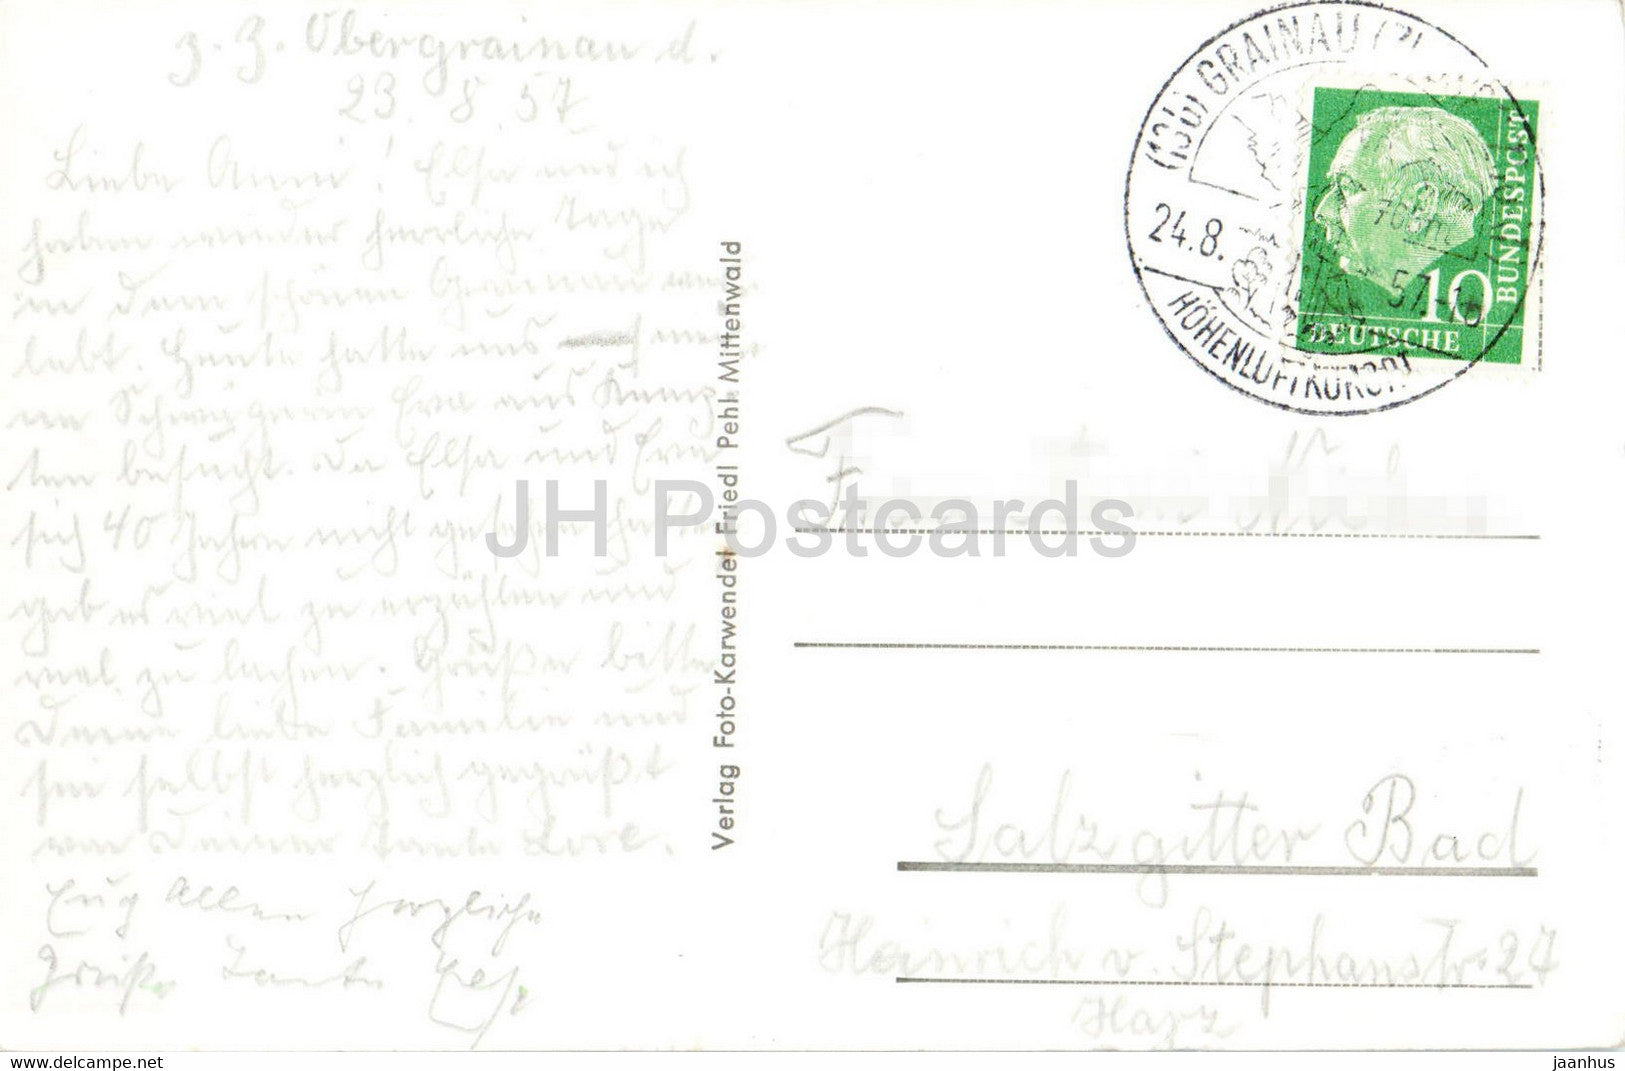 z. Z. Obergrainau d.
23. 8. 57
Liebe Anni! Elsa und ich
haben wieder herrliche Tage
in dem schönen Grainau
lebt. Heute hatte uns
ne Schwägerin Eva aus Kemp-
ten besucht. Da Elsa und Eva
sich 40 Jahre nicht gesehen hatten
gab es viel zu erzählen und
viel zu lachen. Grüße bitte
Deine liebe Familie und
sei selbst herzlich gegrüßt
von Deiner Tante Lore.
Eug allen herzliche
Grüße Tante Elsa
Verlag Foto-Karwendel Friedl Pehl Mittenwald
(13b) GRAINAU (2)
24.8. 57.-18
HÖHENLUFTKURORT
BUNDESPOST
10
DEUTSCHE
JH Postcards
Salzgitter Bad
Heinrich v. Stephanstr. 27
Harz
www.delcampe.net
jaanhus